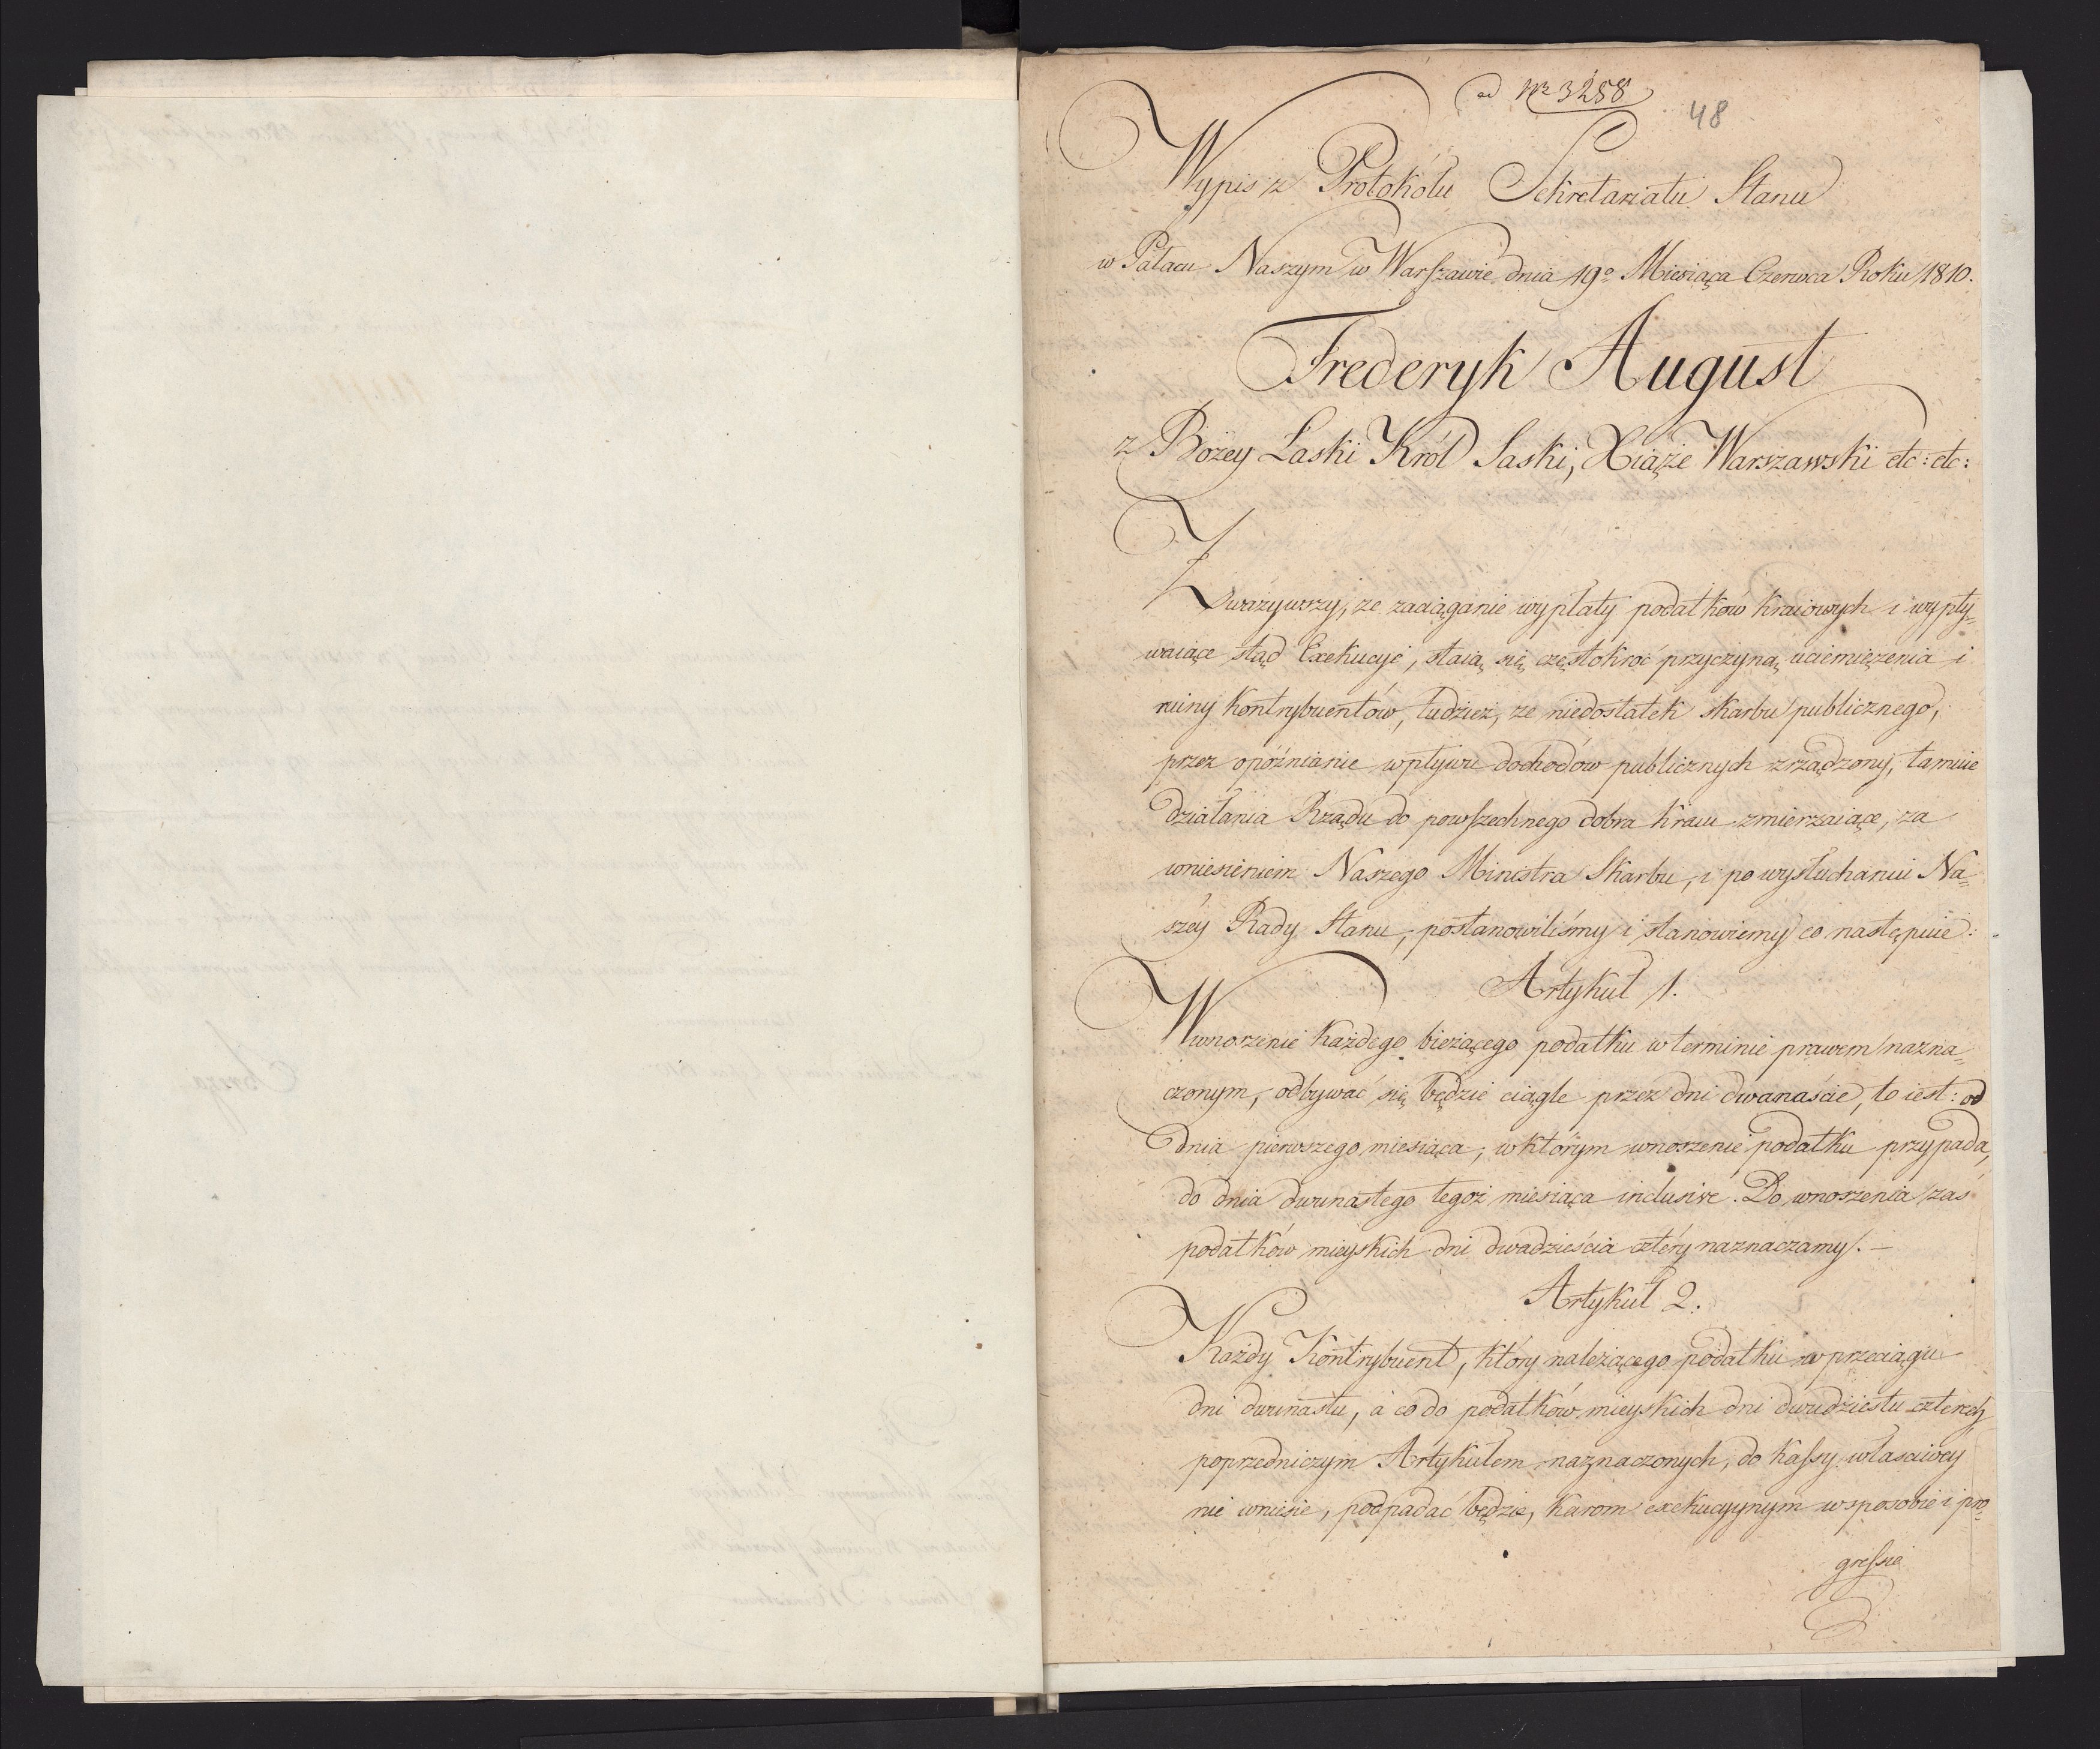 ad Nr 3288
48
Wypis z Protokółu Sekretariatu Stanu
w Pałacu Naszym w Warszawie dnia 19o Miesiąca Czerwca Roku 1810.
Frederyk August
z Bożey Łaski Król Saski, Xiąże Warszawski etc: etc:
Zważywszy, że zaciąganie wypłaty podatków kraiowych i wypły=
waiące stąd Exekucye, staią się częstokroć przyczyną uciemiężenia i
ruiny kontrybuentów, tudzież, że niedostatek skarbu publicznego,
przez opóźnianie wpływu dochodów publicznych zrządzony, tamuie
działania Rządu do powszechnego dobra kraiu zmierzaiące, za
wniesieniem Naszego Ministra Skarbu, i po wysłuchaniu Na=
széy Rady Stanu, postanowiliśmy i stanowiemy co następuie:
Artykuł 1.
Wnoszenie każdego bieżącego podatku w terminie prawem nazna=
czonym, odbywać się będzie ciągle przez dni dwanaście, to iest: od
dnia pierwszego miesiąca, w którym wnoszenie podatku przypada,
do dnia dwunastego tegoż miesiąca inclusive. Do wnoszenia zaś
podatków mieyskich dni dwadzieścia cztéry naznaczamy. —
Artykuł 2.
Każdy Kontrybuent, który należącego podatku w przeciągu
dni dwunastu, a co do podatków mieyskich dni dwudziestu czterech
poprzedniczym Artykułem naznaczonych, do kassy właściwey
nie wniesie, podpadać będzie, karom exekucyynym w sposobie i pro=
gressie